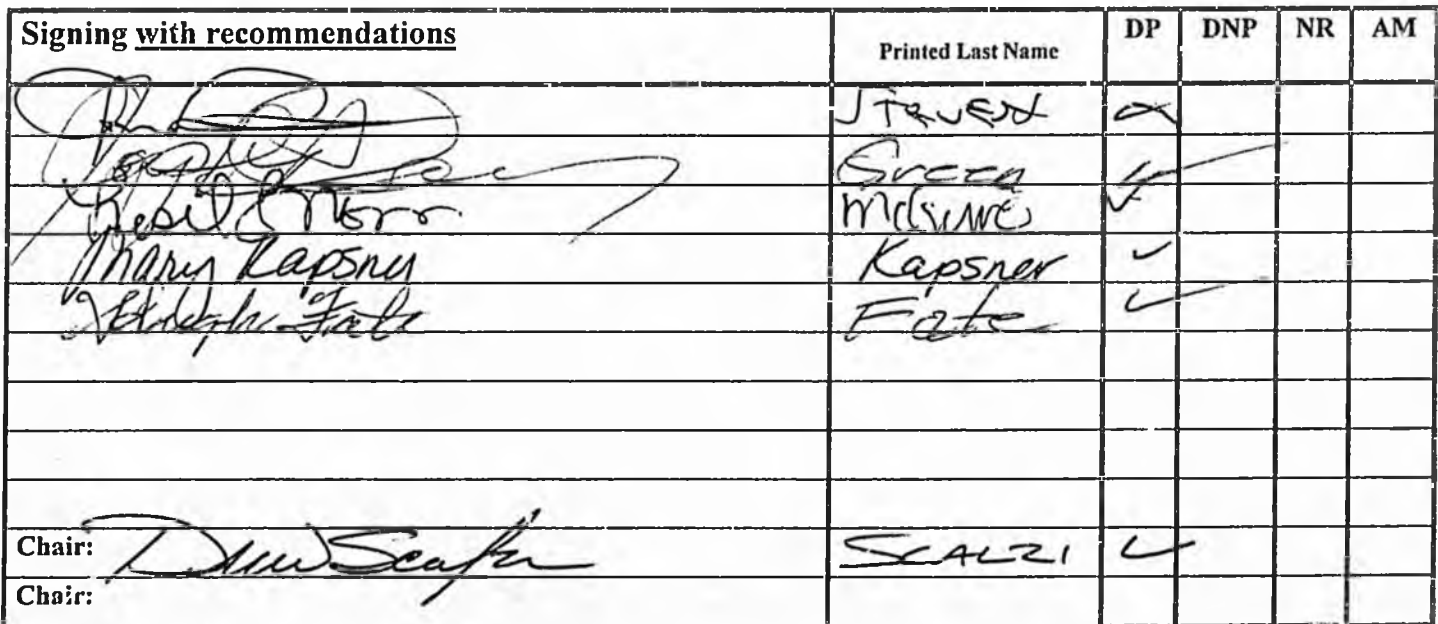 Signing with recommendations Printed Last Name DP DNP NR AM
Green
Mary Kapsner Kapsner
Fate Fate
Chair: Drew Scalzi SCALZI
Chair: